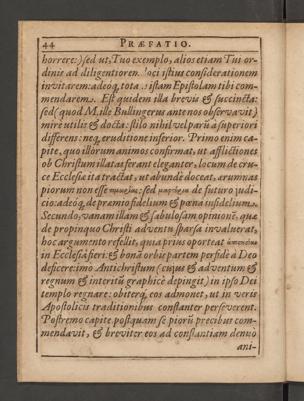 44 PRÆFATIO.
horrere:) sed ut, Tuo exemplo, alios etiam Tui or-
dinis ad diligentiorem loci istius considerationem
invitarem: adeoq́, totā istam Epistolam tibi com-
mendarem. Est quidem illa brevis & succincta:
sed (quod M. ille Bullingerus ante nos observavit)
mirè utilis & docta: stilo nihil vel parū à superiori
differens: neq́, eruditione inferior. Primo enim ca-
pite, quo illorum animos confirmat, ut afflictiones
ob Christum illatas ferant eleganter, locum de cru-
ce Ecclesiæ ita tractat, ut abundè doceat, ærumnas
piorum non esse sed de futuro judi-
cio: adeoq́, de præmio fidelium & pœna infidelium.
Secundo, vanam illam & fabulosam opinionē, quæ
de propinquo Christi adventu sparsa invaluerat,
hoc argumento refellit, quia prius oporteat
in Ecclesiâ fieri: & bonā orbis partem perfidè à Deo
deficere: imo Antichristum (cujus & adventum &
regnum & interitū graphicè depingit) in ipso Dei
templo regnare: obiterq́, eos admonet, ut in veris
Apostolicis traditionibus constanter perseverent.
Postremo capite postquam se piorū precibus com-
mendavit, & breviter eos ad constantiam denuò
ani-